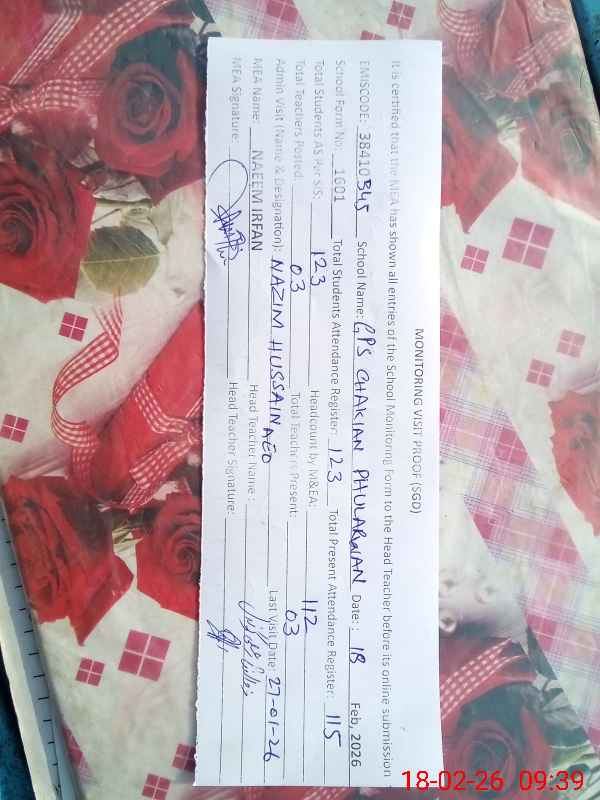 MONITORING VISIT PROOF (SGD)
It is certified that the MEA has shown all entries of the School Monitoring Form to the Head Teacher before its online submission
EMISCODE: 38410345 School Name: GPS CHAKIAN PHULARWAN Date: : 18 Feb, 2026
School Form No: 1601 Total Students Attendance Register: 123 Total Present Attendance Register: 115
Total Students AS Per SIS: 123 Headcount by M&EA: 112
Total Teachers Posted: 03 Total Teachers Present: 03
Admin Visit (Name & Designation): NAZIM HUSSAIN AEO Last Visit Date: 27-01-26
MEA Name: NAEEM IRFAN Head Teacher Name :
MEA Signature: Head Teacher Signature:
18-02-26 09:39